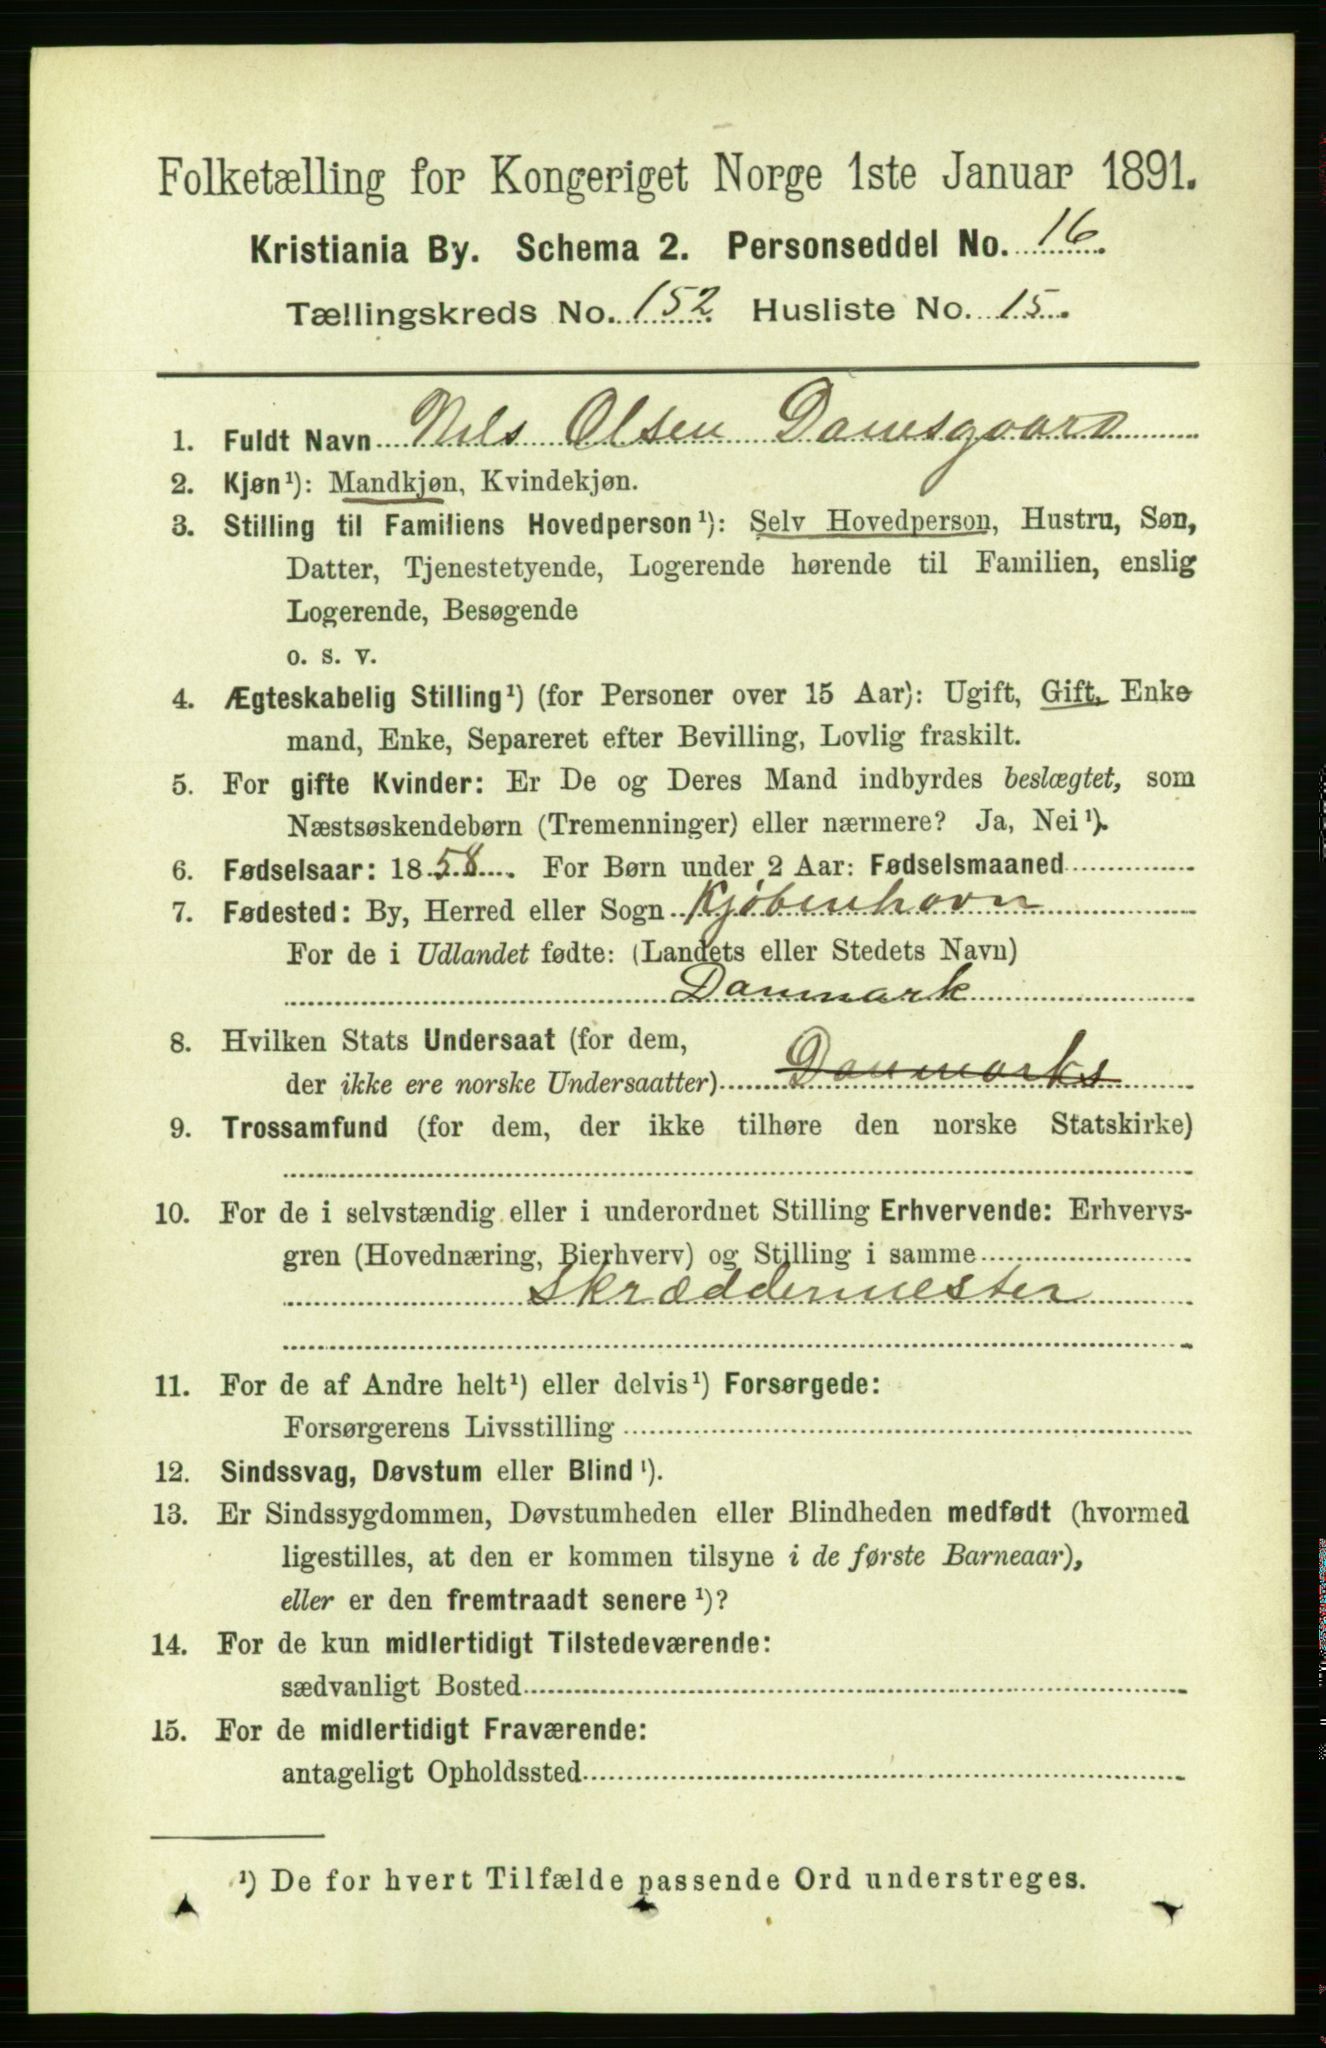 Folketælling for Kongeriget Norge 1ste Januar 1891.
Kristiania By. Schema 2. Personseddel No. 16.
Tællingskreds No. 152. Husliste No. 15.
1. Fuldt Navn Nils Olsen Damsgaard
2. Kjøn¹): Mandkjøn, Kvindekjøn.
3. Stilling til Familiens Hovedperson¹): Selv Hovedperson, Hustru, Søn,
Datter, Tjenestetyende, Logerende hørende til Familien, enslig
Logerende, Besøgende
o. s. v.
4. Ægteskabelig Stilling¹) (for Personer over 15 Aar): Ugift, Gift, Enke
mand, Enke, Separeret efter Bevilling, Lovlig fraskilt.
5. For gifte Kvinder: Er De og Deres Mand indbyrdes beslægtet, som
Næstsøskendebørn (Tremenninger) eller nærmere? Ja, Nei¹).
6. Fødselsaar: 1858. For Børn under 2 Aar: Fødselsmaaned
7. Fødested: By, Herred eller Sogn Kjöbenhavn
For de i Udlandet fødte: (Landets eller Stedets Navn)
Danmark
8. Hvilken Stats Undersaat (for dem,
der ikke ere norske Undersaatter) Danmarks
9. Trossamfund (for dem, der ikke tilhøre den norske Statskirke)
10. For de i selvstændig eller i underordnet Stilling Erhvervende: Erhvervs-
gren (Hovednæring, Bierhverv) og Stilling i samme
Skræddermester
11. For de af Andre helt¹) eller delvis¹) Forsørgede:
Forsørgerens Livsstilling
12. Sindssvag, Døvstum eller Blind¹).
13. Er Sindssygdommen, Døvstumheden eller Blindheden medfødt (hvormed
ligestilles, at den er kommen tilsyne i de første Barneaar),
eller er den fremtraadt senere¹)?
14. For de kun midlertidigt Tilstedeværende:
sædvanligt Bosted
15. For de midlertidigt Fraværende:
antageligt Opholdssted
¹) De for hvert Tilfælde passende Ord understreges.